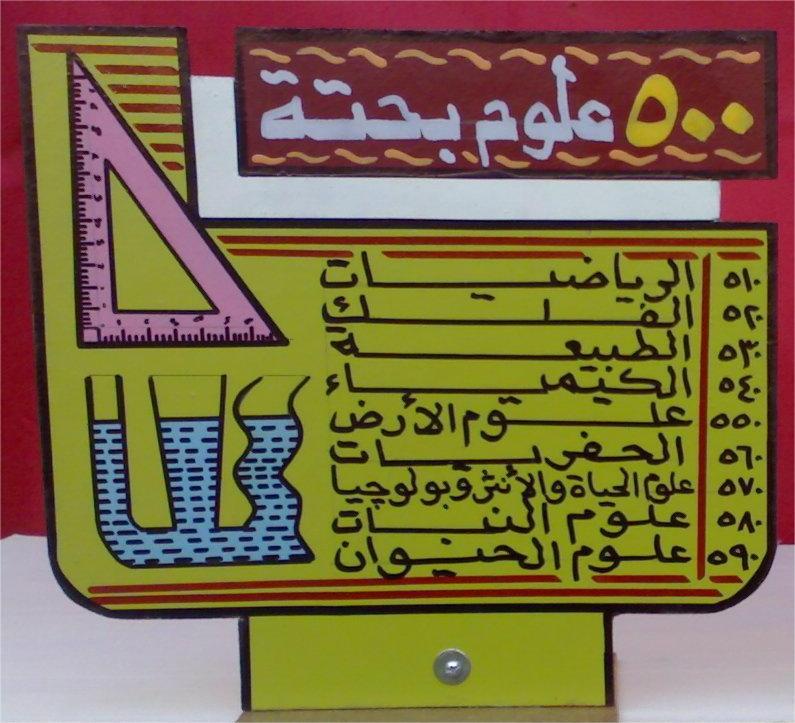 ٥٠٠ علوم بحتة
٥١٠ الرياضيات
٥٢٠ الفلك
٥٣٠ الطبيعه
٥٤٠ الكيمياء
٥٥٠ علوم الأرض
٥٦٠ الحفريات
٥٧٠ علوم الحياة والأنثروبولوجيا
٥٨٠ علوم النبات
٥٩٠ علوم الحيوان